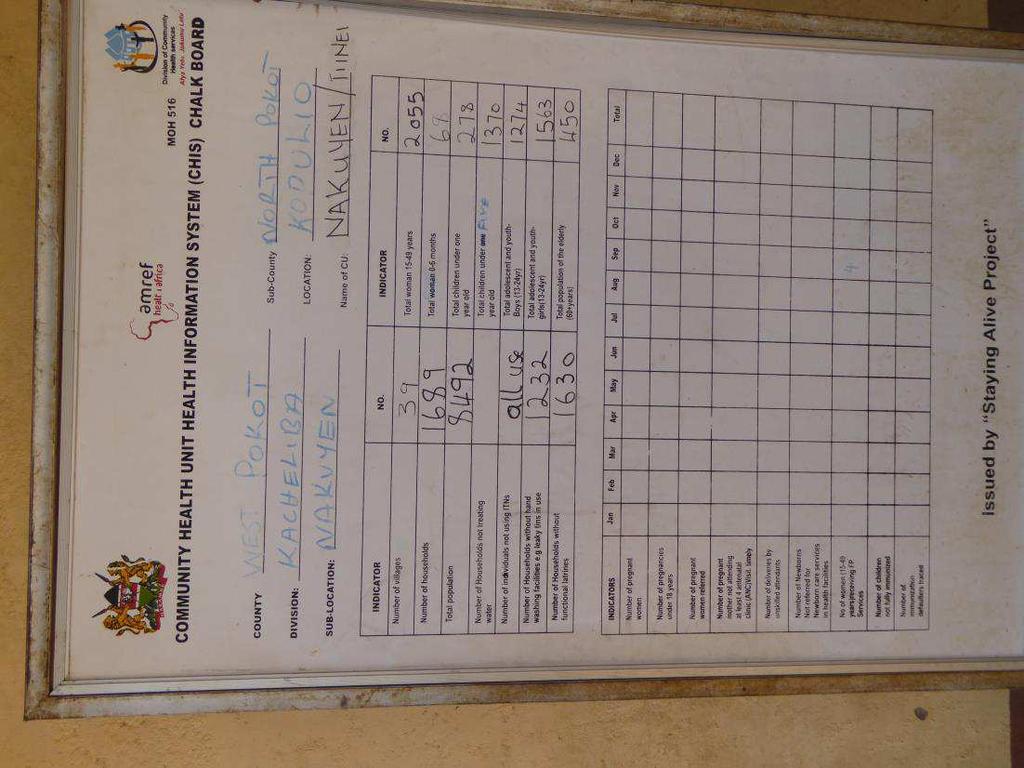 amref
health africa
Division of Community
Health services
Afya Yetu, Jukumu Letu
MOH 516
COMMUNITY HEALTH UNIT HEALTH INFORMATION SYSTEM (CHIS) CHALK BOARD
COUNTY WEST POKOT Sub-County NORTH POKOT
DIVISION: KACHELIBA LOCATION: KODULIO
SUB-LOCATION: NAKUYEN Name of CU: NAKUYEN/
INDICATOR NO. INDICATOR NO.
Number of villages 39 Total woman 15-49 years 2055
Number of households 1689 Total woman 0-6 months
Total population 8492 Total children under one
year old 278
Number of Households not treating
water Total children under one Five
year old 1370
Number of individuals not using ITNs all use Total adolescent and youth-
Boys (13-24yr) 1274
Number of Households without hand
washing facilities e.g leaky tins in use 1232 Total adolescent and youth-
girls(13-24yr) 1563
Number of Households without
functional latrines 1630 Total population of the elderly
(60+years) 450
INDICATORS Jan Feb Mar Apr May Jun Jul Aug Sep Oct Nov Dec Total
Number of pregnant
women
Number of pregnancies
under 18 years
Number of pregnant
women referred
Number of pregnant
mother not attending
at least 4 antenatal
clinic (ANC)Visit. timely
Number of deliveries by
unskilled attendants
Number of Newborns
Not referred for
Newborn care services
in health facilities
No of women (15-49
years)receiving FP.
Services 4
Number of children
not fully immunized
Number of
immunization
defaulters traced
Issued by "Staying Alive Project"